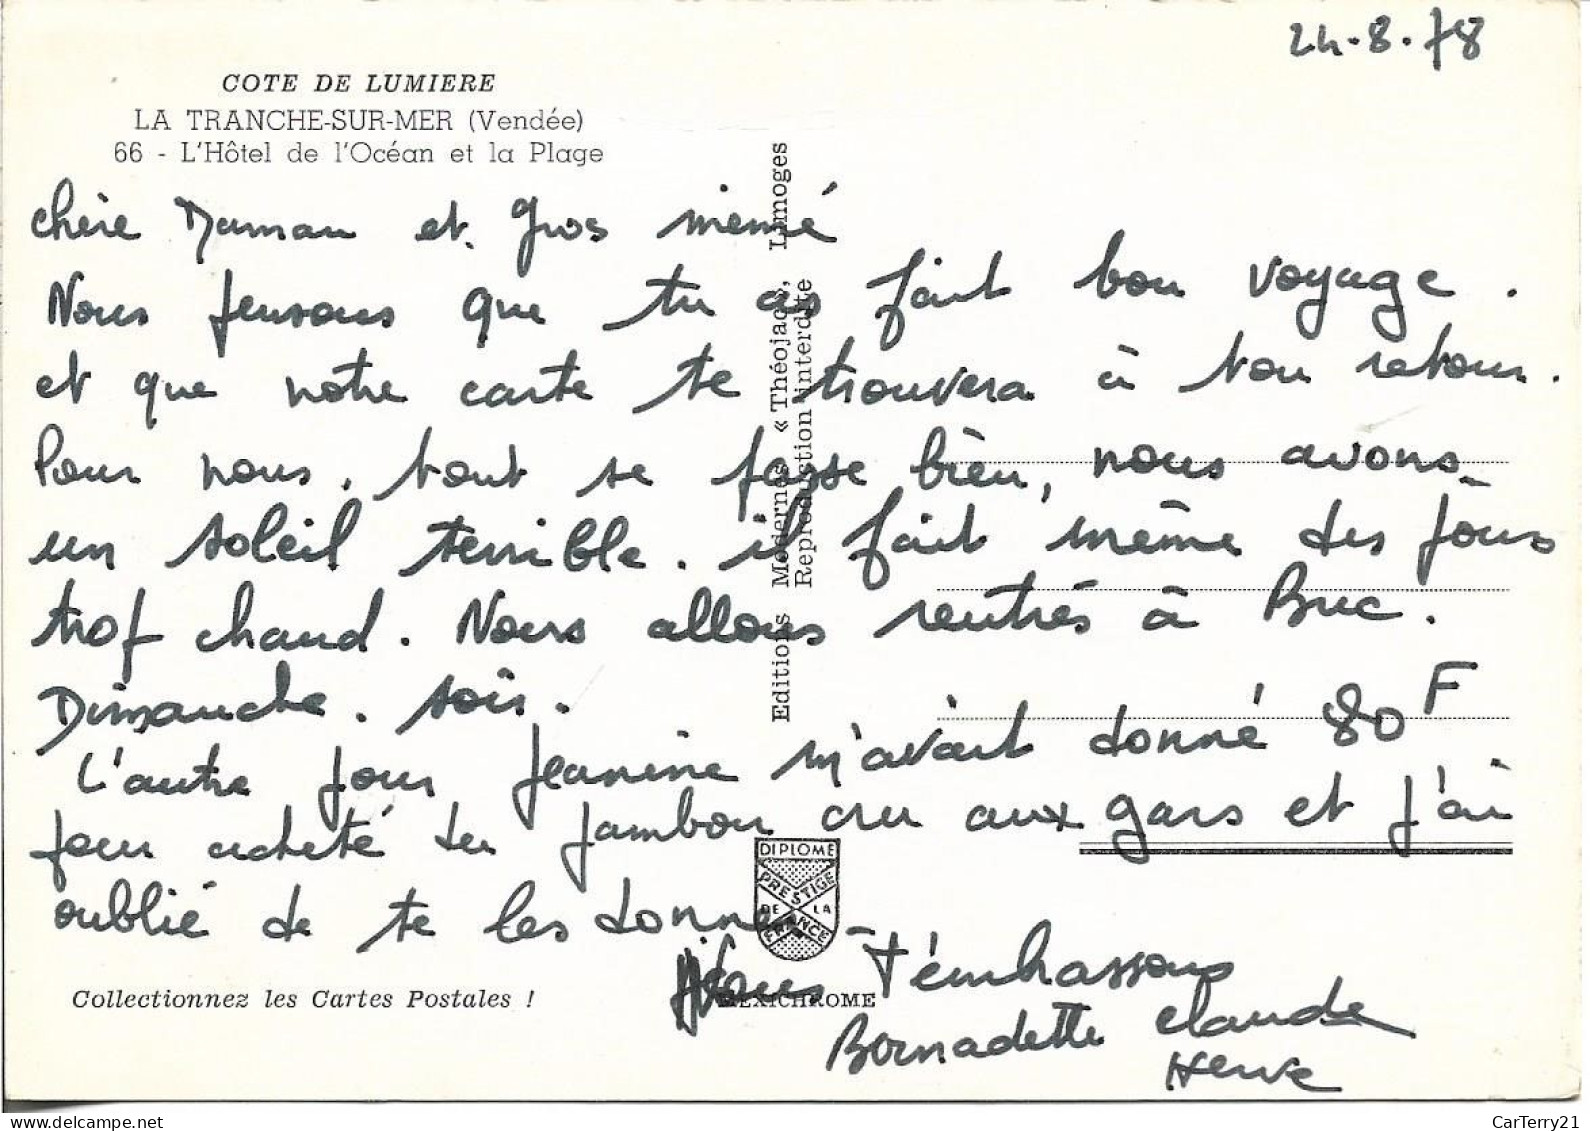 24.8.78
COTE DE LUMIERE
LA TRANCHE-SUR-MER (Vendée)
66 - L'Hôtel de l'Océan et la Plage
chère Maman et Gros mémé
Nous pensons que tu as fait bon voyage.
et que notre carte te trouvera à ton retour.
Pour nous. tout se passe bien, nous avons
un soleil terrible. il fait même des jours
trop chaud. Nous allons rentrés à Buc.
Dimanche. soir.
L'autre jour Jeanine m'avait donné 80 F
pour acheté du jambon cru aux gars et j'ai
oublié de te les donner -
Nous t'embrassons
Bernadette Claude
Herve
Editions Modernes « Théojac », Limoges
Reproduction interdite
DIPLOME
PRESTIGE
DE LA
FRANCE
MEXICHROME
Collectionnez les Cartes Postales !
CarTerry21